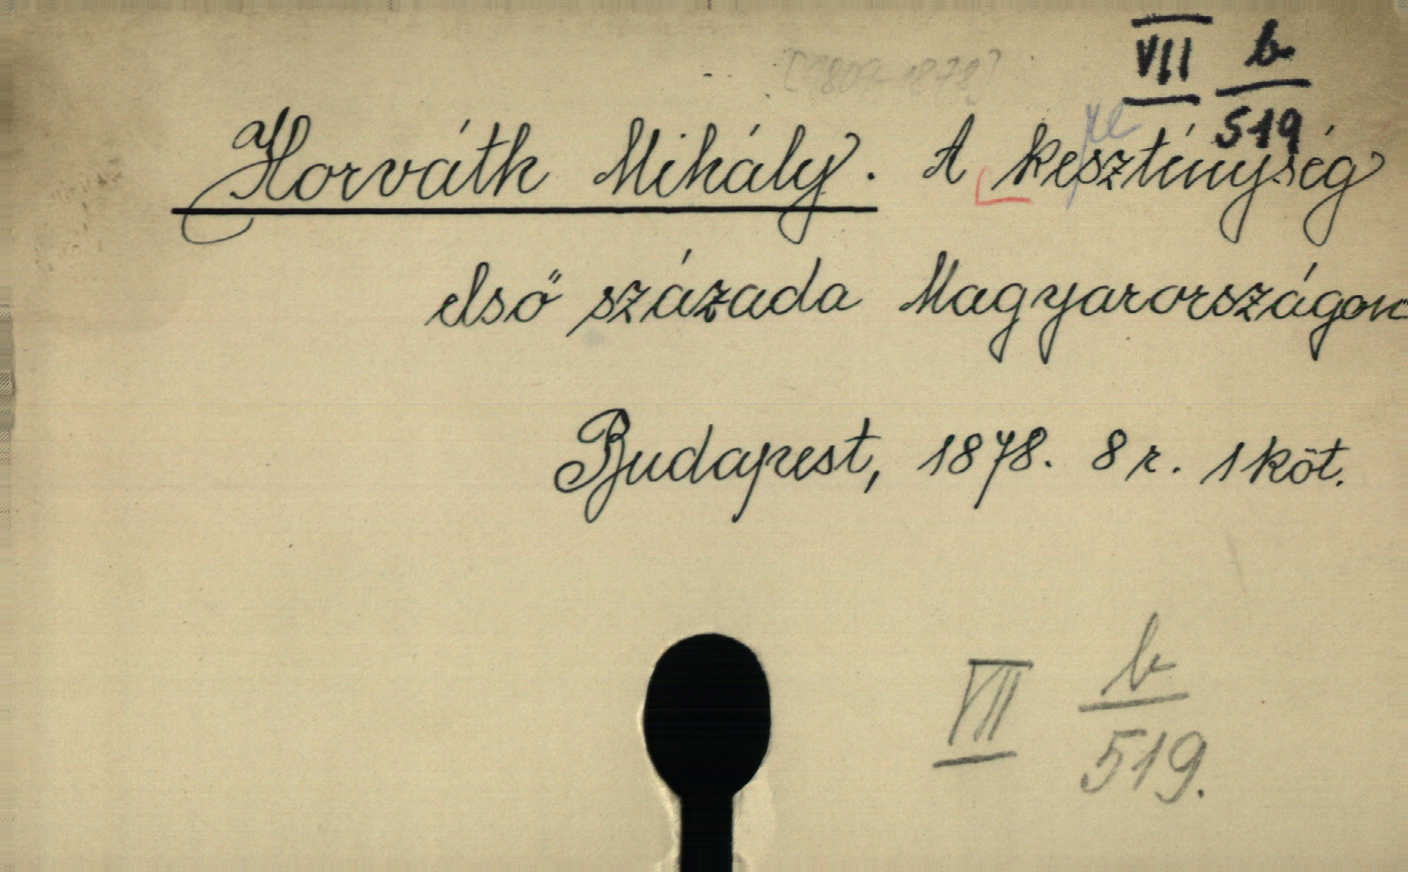 [1809-1878]
VII b
519
Horváth Mihály. A keszténység
re
első százada Magyarországon
Budapest, 1878. 8 r. 1 köt.
VII b
519.